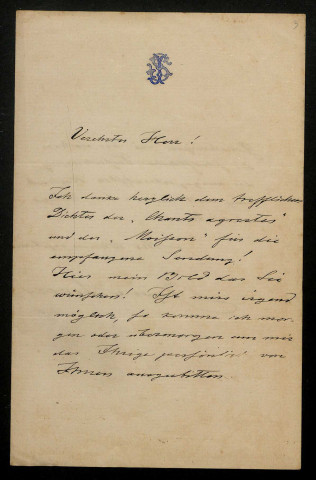 JS
Verehrter Herr!
Ich danke herzlich dem trefflichen
Dichter der „Chants agrestes"
und der „Moisson" für die
empfangene Sendung!
Hier mein Bild das Sie
wünschen! Ist mirs irgend
möglich, so komme ich mor-
gen oder übermorgen um mir
das Ihrige persönlich von
Ihnen auszubitten